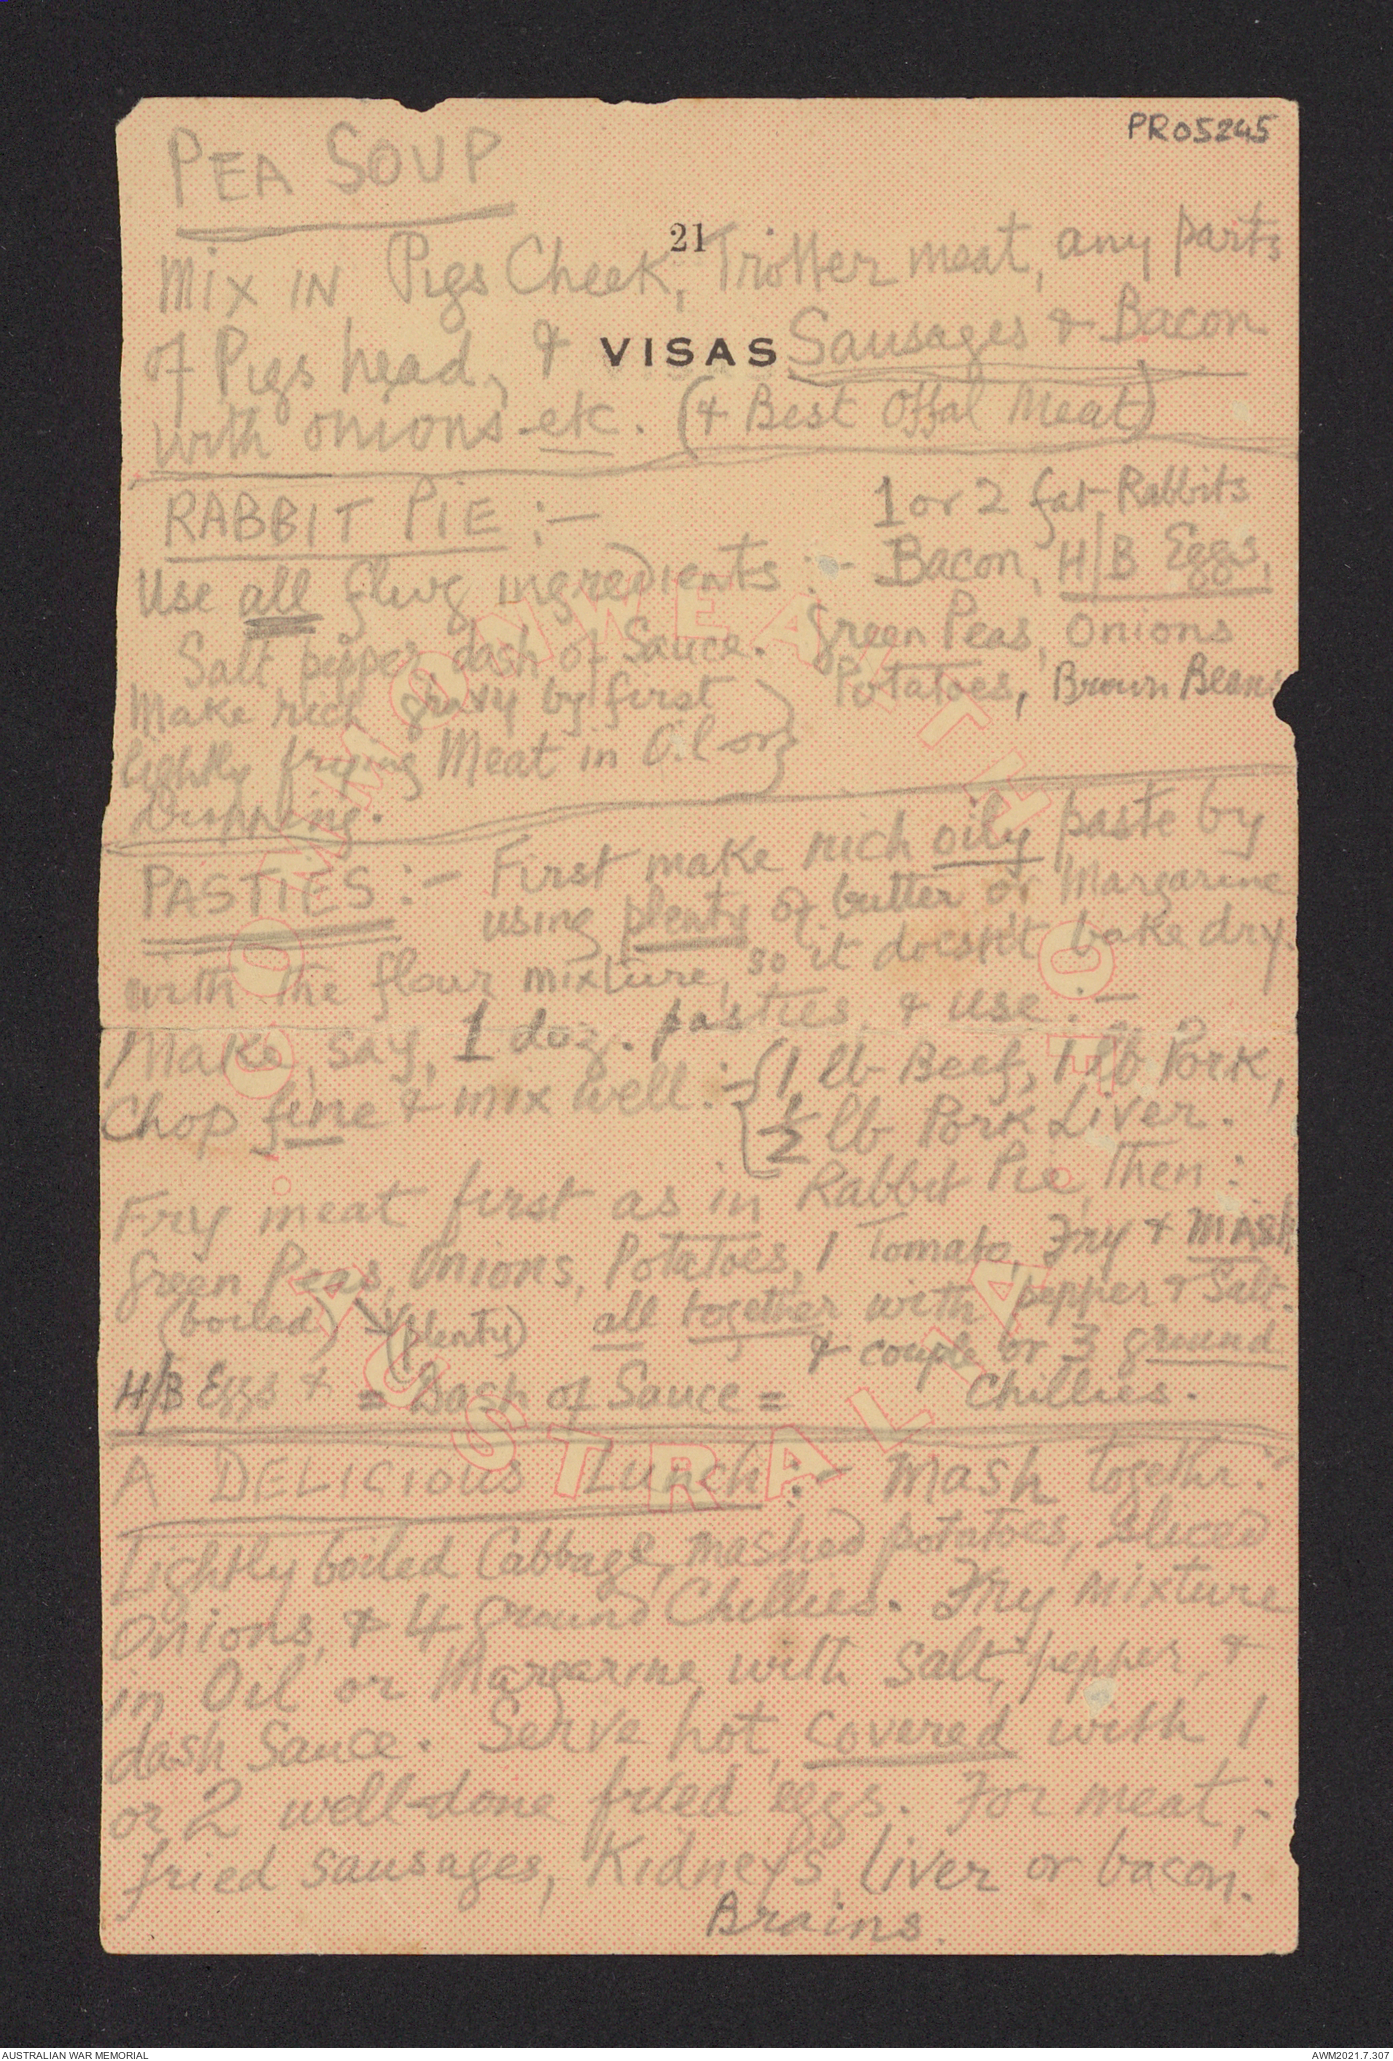 PR05245
PEA SOUP
21
Mix IN Pigs Cheek, Trotter meat, any parts
of Pigs head, & Sausages & Bacon
VISAS
with onions etc. (& Best Offal Meat)
RABBIT PIE :-
1 or 2 fat Rabbits
Use all flwg ingredients :- Bacon, H/B Eggs,
Salt pepper dash of Sauce. Green Peas, Onions
Make rich gravy by first Potatoes, Brown Beans
lightly frying Meat in Oil or
Dripping.
PASTIES :- First make rich oily paste by
using plenty of butter or Margarine
with the flour mixture, so it doesn't bake dry.
Make, say, 1 doz. pasties, & use :-
Chop fine & mix well :- {1 lb Beef, 1 lb Pork,
½ lb Pork Liver.
Fry meat first as in Rabbit Pie, Then :
Green Peas, Onions, Potatoes, 1 Tomato, Fry & MASH
(boiled) (plenty) all together with pepper & Salt.
& couple or 3 ground
H/B Eggs & = Dash of Sauce = Chillies.
A DELICIOUS LUNCH :- Mash together :-
Lightly boiled Cabbage, mashed potatoes, sliced
Onions, & 4 ground Chillies. Fry mixture
in Oil or Margarine, with salt, pepper, &
dash Sauce. Serve hot, covered with 1
or 2 well-done fried eggs. For meat,-
fried sausages, Kidneys, liver or bacon.
Brains.
COMMONWEALTH OF
AUSTRALIA
AUSTRALIAN WAR MEMORIAL
AWM2021.7.307